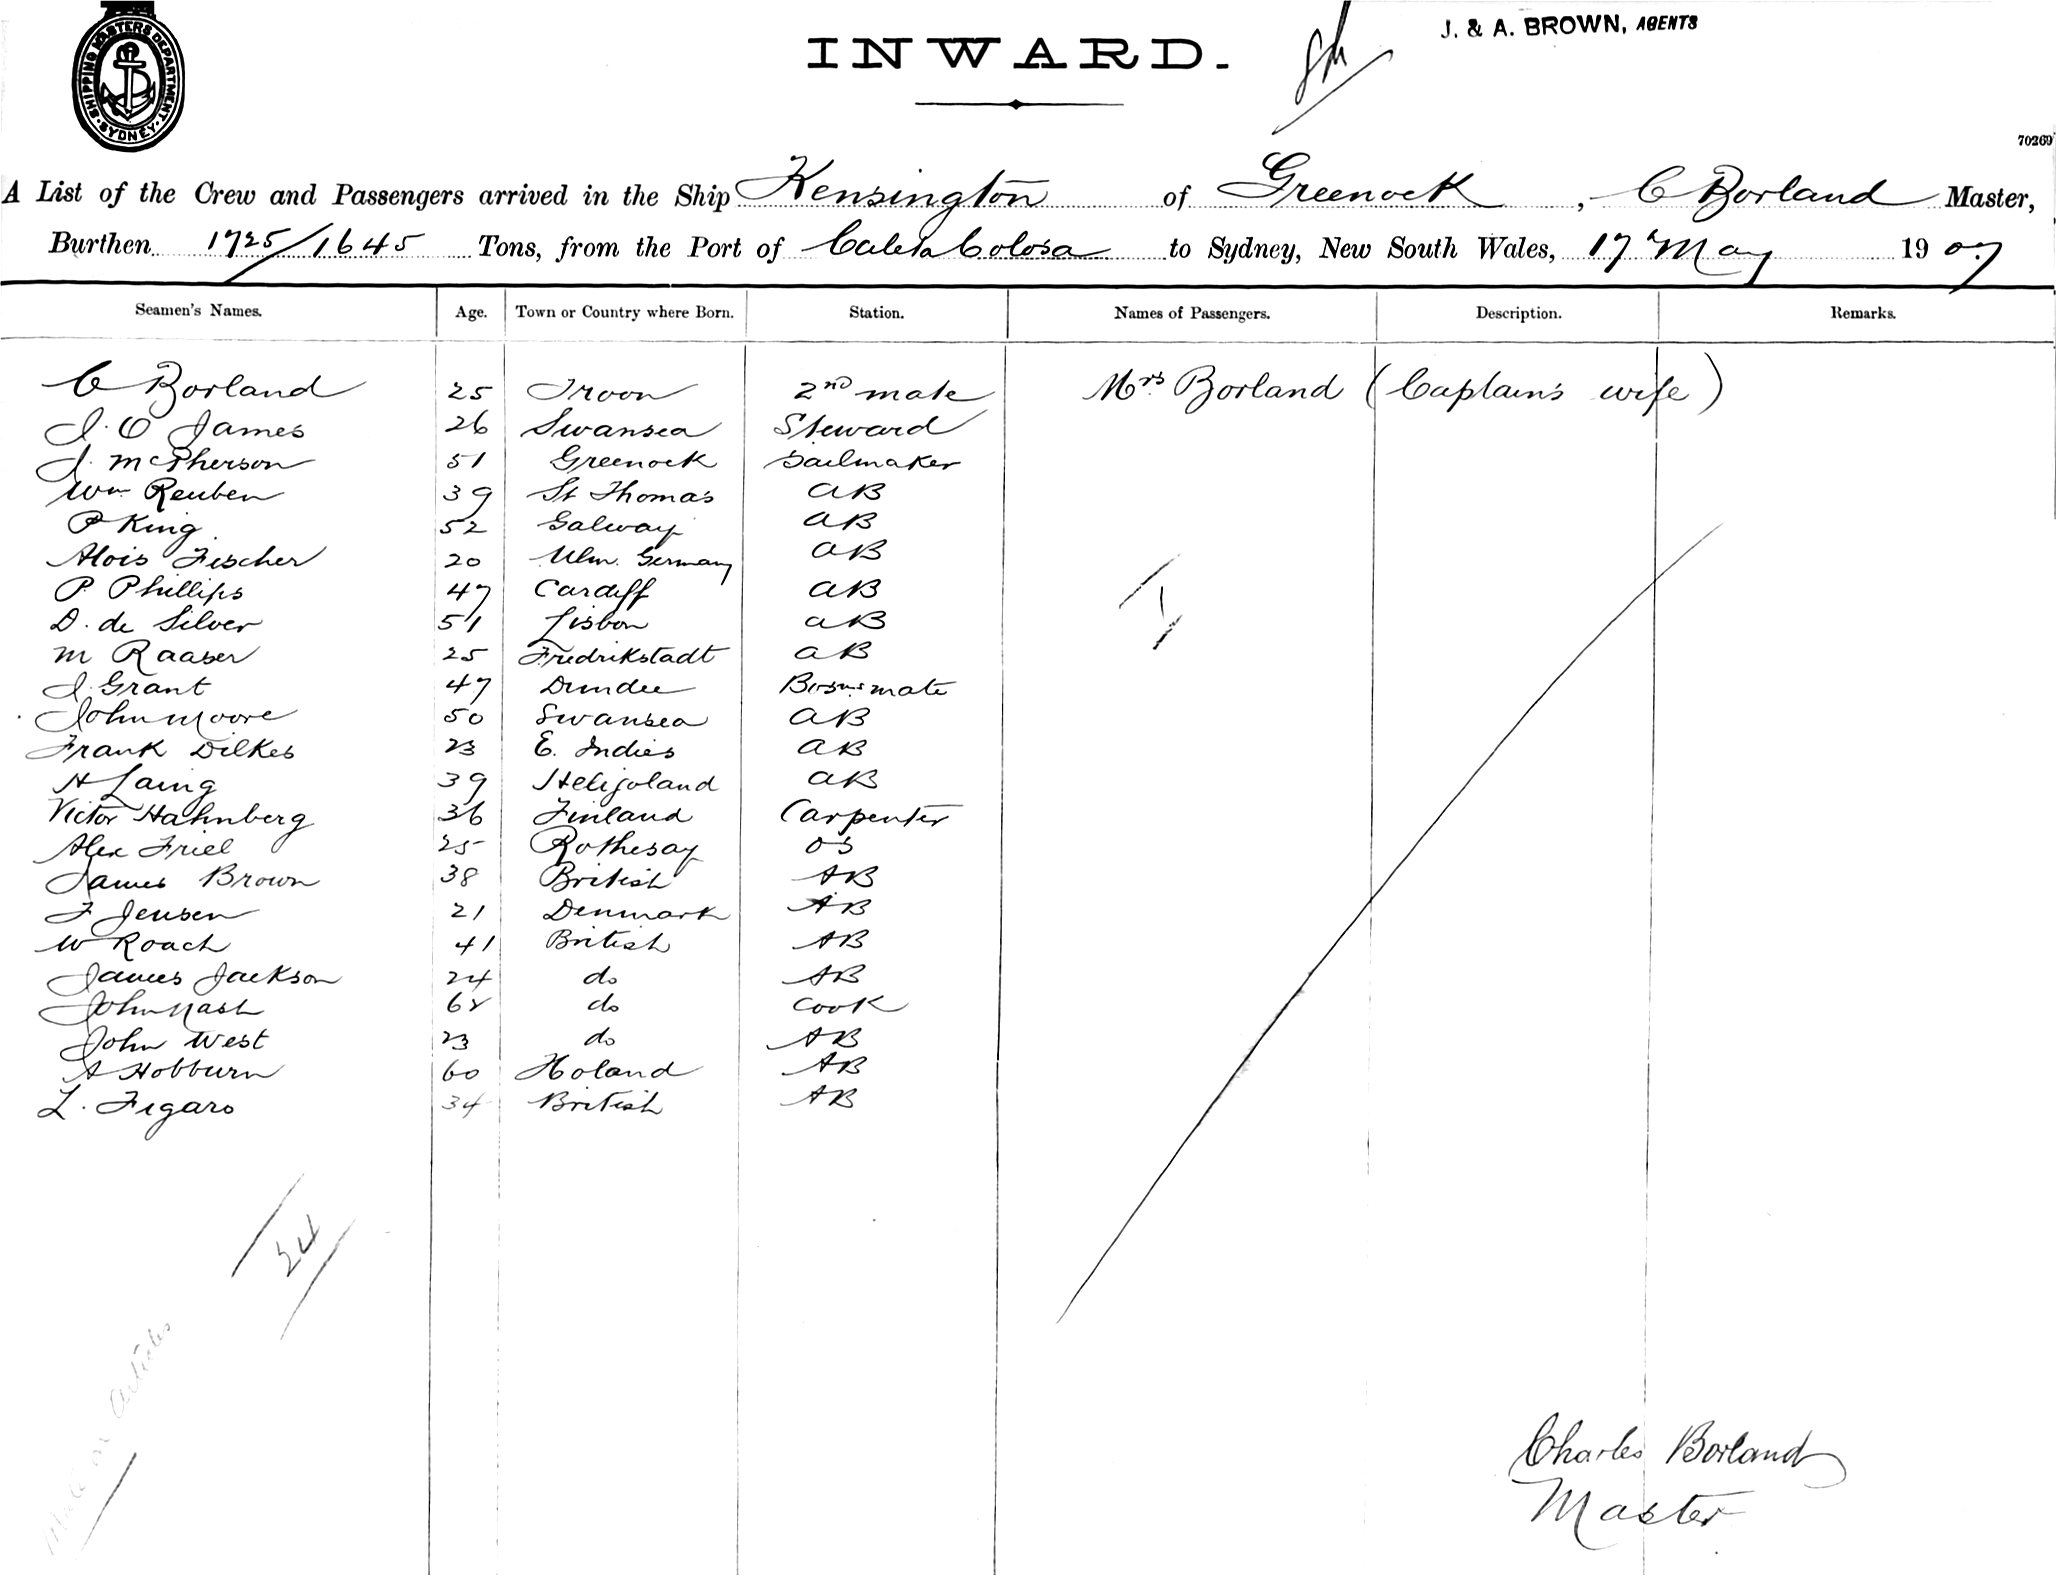 SHIPPING MASTERS DEPARTMENT
SYDNEY
J. & A. BROWN, AGENTS
INWARD.
70269
A List of the Crew and Passengers arrived in the Ship Kensington of Greenock, C Borland Master,
Burthen 1725/1645 Tons, from the Port of Caleta Colosa to Sydney, New South Wales, 17 May 1907
Seamen's Names. Age. Town or Country where Born. Station. Names of Passengers. Description. Remarks.
C Borland 25 Troon 2nd mate Mrs Borland (Captain's wife)
J. O James 26 Swansea Steward
J. McPherson 51 Greenock Sailmaker
Wm Reuben 39 St Thomas AB
P King 52 Galway AB
Alois Fischer 20 Ulm. Germany AB
P. Phillips 47 Cardiff AB
D. de Silver 51 Lisbon AB
M Raaser 25 Fredrikstadt AB
J. Grant 47 Dundee Bosns mate
John Moore 50 Swansea AB
Frank Dilkes 23 E. Indies AB
H Laing 39 Heligoland AB
Victor Hahnberg 36 Finland Carpenter
Alex Friel 25 Rothesay OS
James Brown 38 British AB
F Jensen 21 Denmark AB
W Roach 41 British AB
James Jackson 24 do AB
John Nash 62 do Cook
John West 23 do AB
A Hobburn 60 Holand AB
L. Figaro 34 British AB
1
24
Articles
Charles Borland
Master